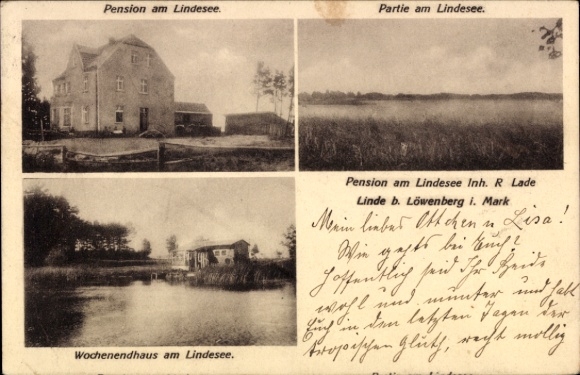 Pension am Lindesee.
Partie am Lindesee.
Pension am Lindesee Inh. R Lade
Linde b. Löwenberg i. Mark
Mein liebes Ottchen u Lisa!
Wie gehts bei Euch?
Hoffentlich seid Ihr Beide
wohl und munter und habt
Euch in den letzten Tagen der
tropischen Gluth, recht mollig
Wochenendhaus am Lindesee.